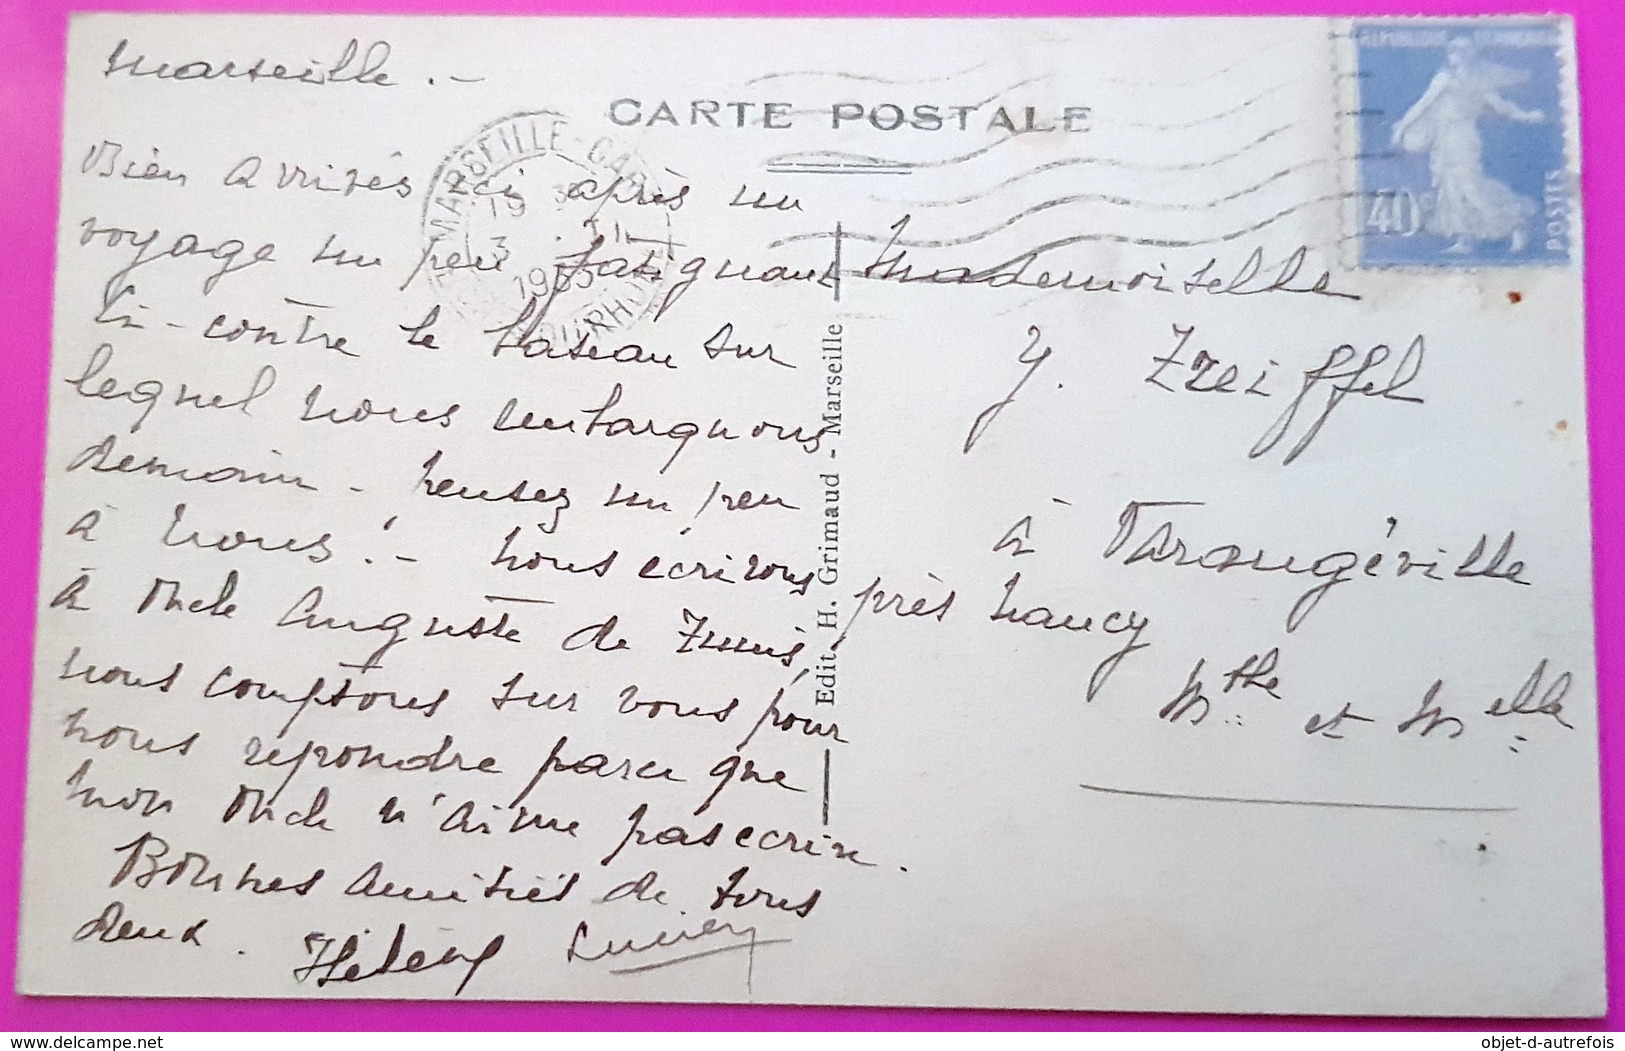 Marseille . -
CARTE POSTALE
REPUBLIQUE FRANÇAISE
40c
POSTES
MARSEILLE-GARE
19
3
1935
DU RHONE
Bien arrivés ici après un
voyage un peu fatiguant
Ci-contre le bateau sur
lequel nous embarquons
demain - Pensez un peu
à nous ! - Nous écrirons
à Oncle Auguste de Tunis,
nous comptons sur vous pour
nous répondre parce que
mon Oncle n'aime pas écrire.
Bonnes amitiés de tous
deux. Hélène Lucien
Edit. H. Grimaud - Marseille
Mademoiselle
Y. Treiffel
à Varangéville
près Nancy
Mthe et Melle
objet-d-autrefois
www.delcampe.net